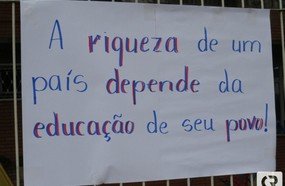 A riqueza de um
país depende da
educação de seu povo!